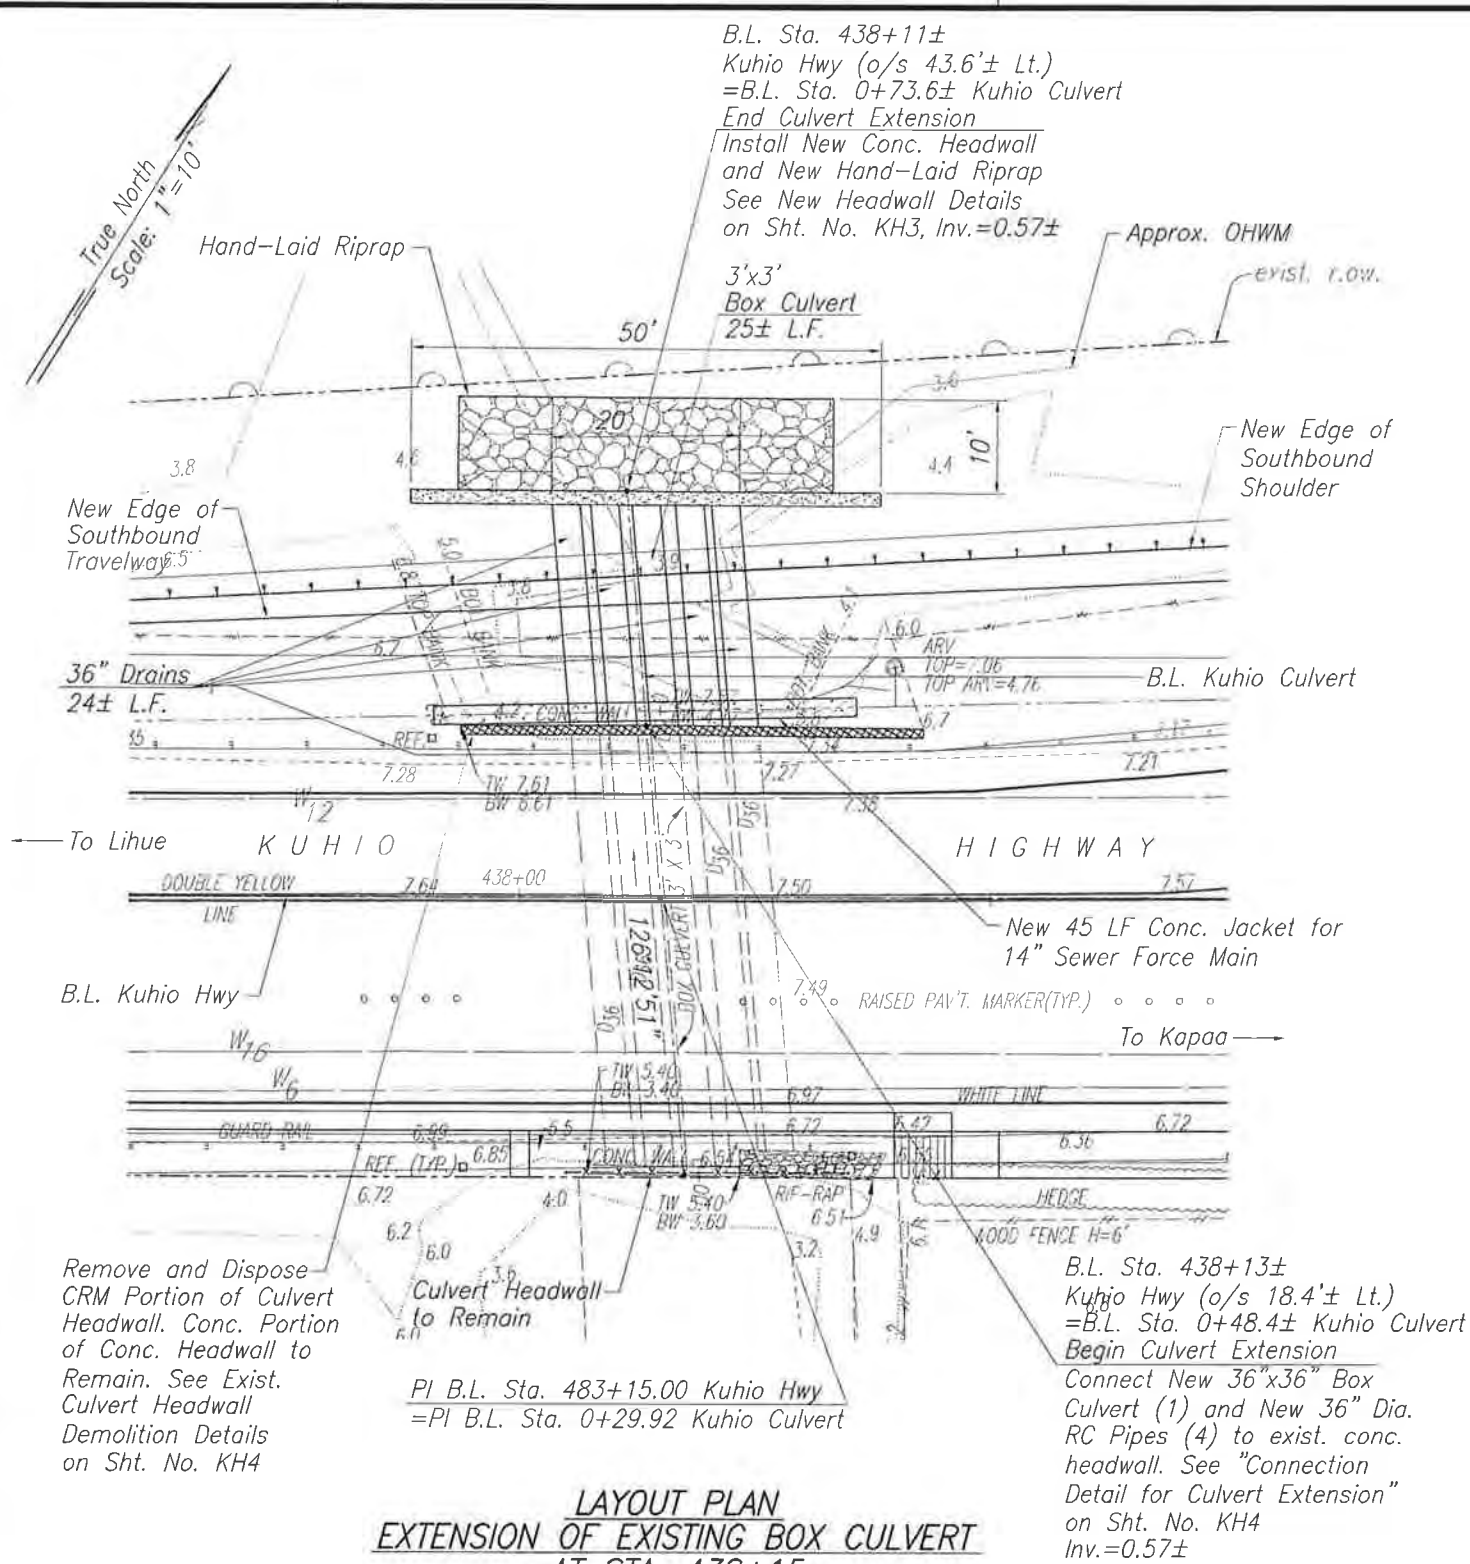 B.L. Sta. 438+11±
Kuhio Hwy (o/s 43.6'± Lt.)
=B.L. Sta. 0+73.6± Kuhio Culvert
End Culvert Extension
Install New Conc. Headwall
and New Hand-Laid Riprap
See New Headwall Details
on Sht. No. KH3, Inv.=0.57±
True North
Scale: 1"=10'
Hand-Laid Riprap
Approx. OHWM
exist. r.o.w.
3'x3'
Box Culvert
25± L.F.
50'
3.6
20'
10'
3.8
4.4
New Edge of
Southbound
Shoulder
New Edge of
Southbound
Travelway
6.5
5.0
BOT BANK
TOP BANK
3.8
3.9
4.1
6.7
6.0
ARV
TOP=7.06
TOP ARV=4.76
B.L. Kuhio Culvert
36" Drains
24± L.F.
4.2
6.7
REF.
7.28
TW 7.61
BW 6.61
7.27
7.21
7.38
W12
To Lihue
KUHIO
HIGHWAY
DOUBLE YELLOW
LINE
7.64
438+00
7.50
7.57
D36
D36
BOX CULVERT 3' X 3'
New 45 LF Conc. Jacket for
14" Sewer Force Main
B.L. Kuhio Hwy
D36
7.49
RAISED PAV'T. MARKER(TYP.)
To Kapaa
W16
W6
TW 5.40
BW 3.40
6.97
WHITE LINE
GUARD RAIL
6.99
5.5
6.72
6.47
6.36
6.72
REF. (TYP.)
6.85
CONC. WALL
6.72
4.0
TW 5.40
BW 3.60
RIP-RAP
6.51
HEDGE
WOOD FENCE H=6'
6.2
6.0
3.6
3.2
4.9
6.0
Remove and Dispose
CRM Portion of Culvert
Headwall. Conc. Portion
of Conc. Headwall to
Remain. See Exist.
Culvert Headwall
Demolition Details
on Sht. No. KH4
Culvert Headwall
to Remain
PI B.L. Sta. 483+15.00 Kuhio Hwy
=PI B.L. Sta. 0+29.92 Kuhio Culvert
B.L. Sta. 438+13±
Kuhio Hwy (o/s 18.4'± Lt.)
=B.L. Sta. 0+48.4± Kuhio Culvert
Begin Culvert Extension
Connect New 36"x36" Box
Culvert (1) and New 36" Dia.
RC Pipes (4) to exist. conc.
headwall. See "Connection
Detail for Culvert Extension"
on Sht. No. KH4
Inv.=0.57±
LAYOUT PLAN
EXTENSION OF EXISTING BOX CULVERT
AT STA. 438+15